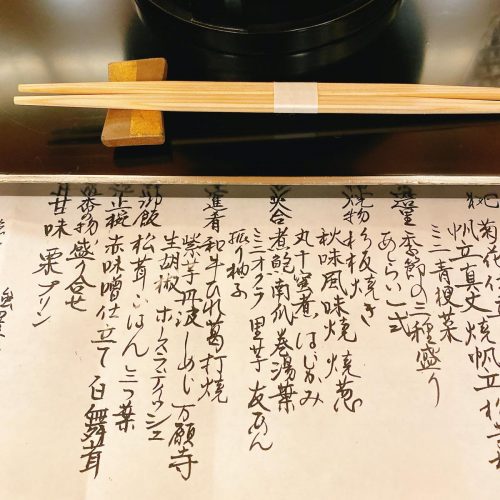 菊花仕立
帆立真丈 焼帆立 松茸
ミニ青梗菜
造里 季節の三種盛り
あしらい一式
焼物 杉板焼き
秋味風味焼 焼葱
丸十蜜煮 はじかみ
炊合 煮鮑 南瓜 巻湯葉
ミニオクラ 里芋 友あん
振り柚子
進肴 和牛ひれ葛打焼
紫芋 丹波しめじ 万願寺
生胡椒 ホースラディッシュ
御飯 松茸ごはん 三つ葉
止椀 赤味噌仕立て 白舞茸
香の物 盛り合せ
甘味 栗プリン